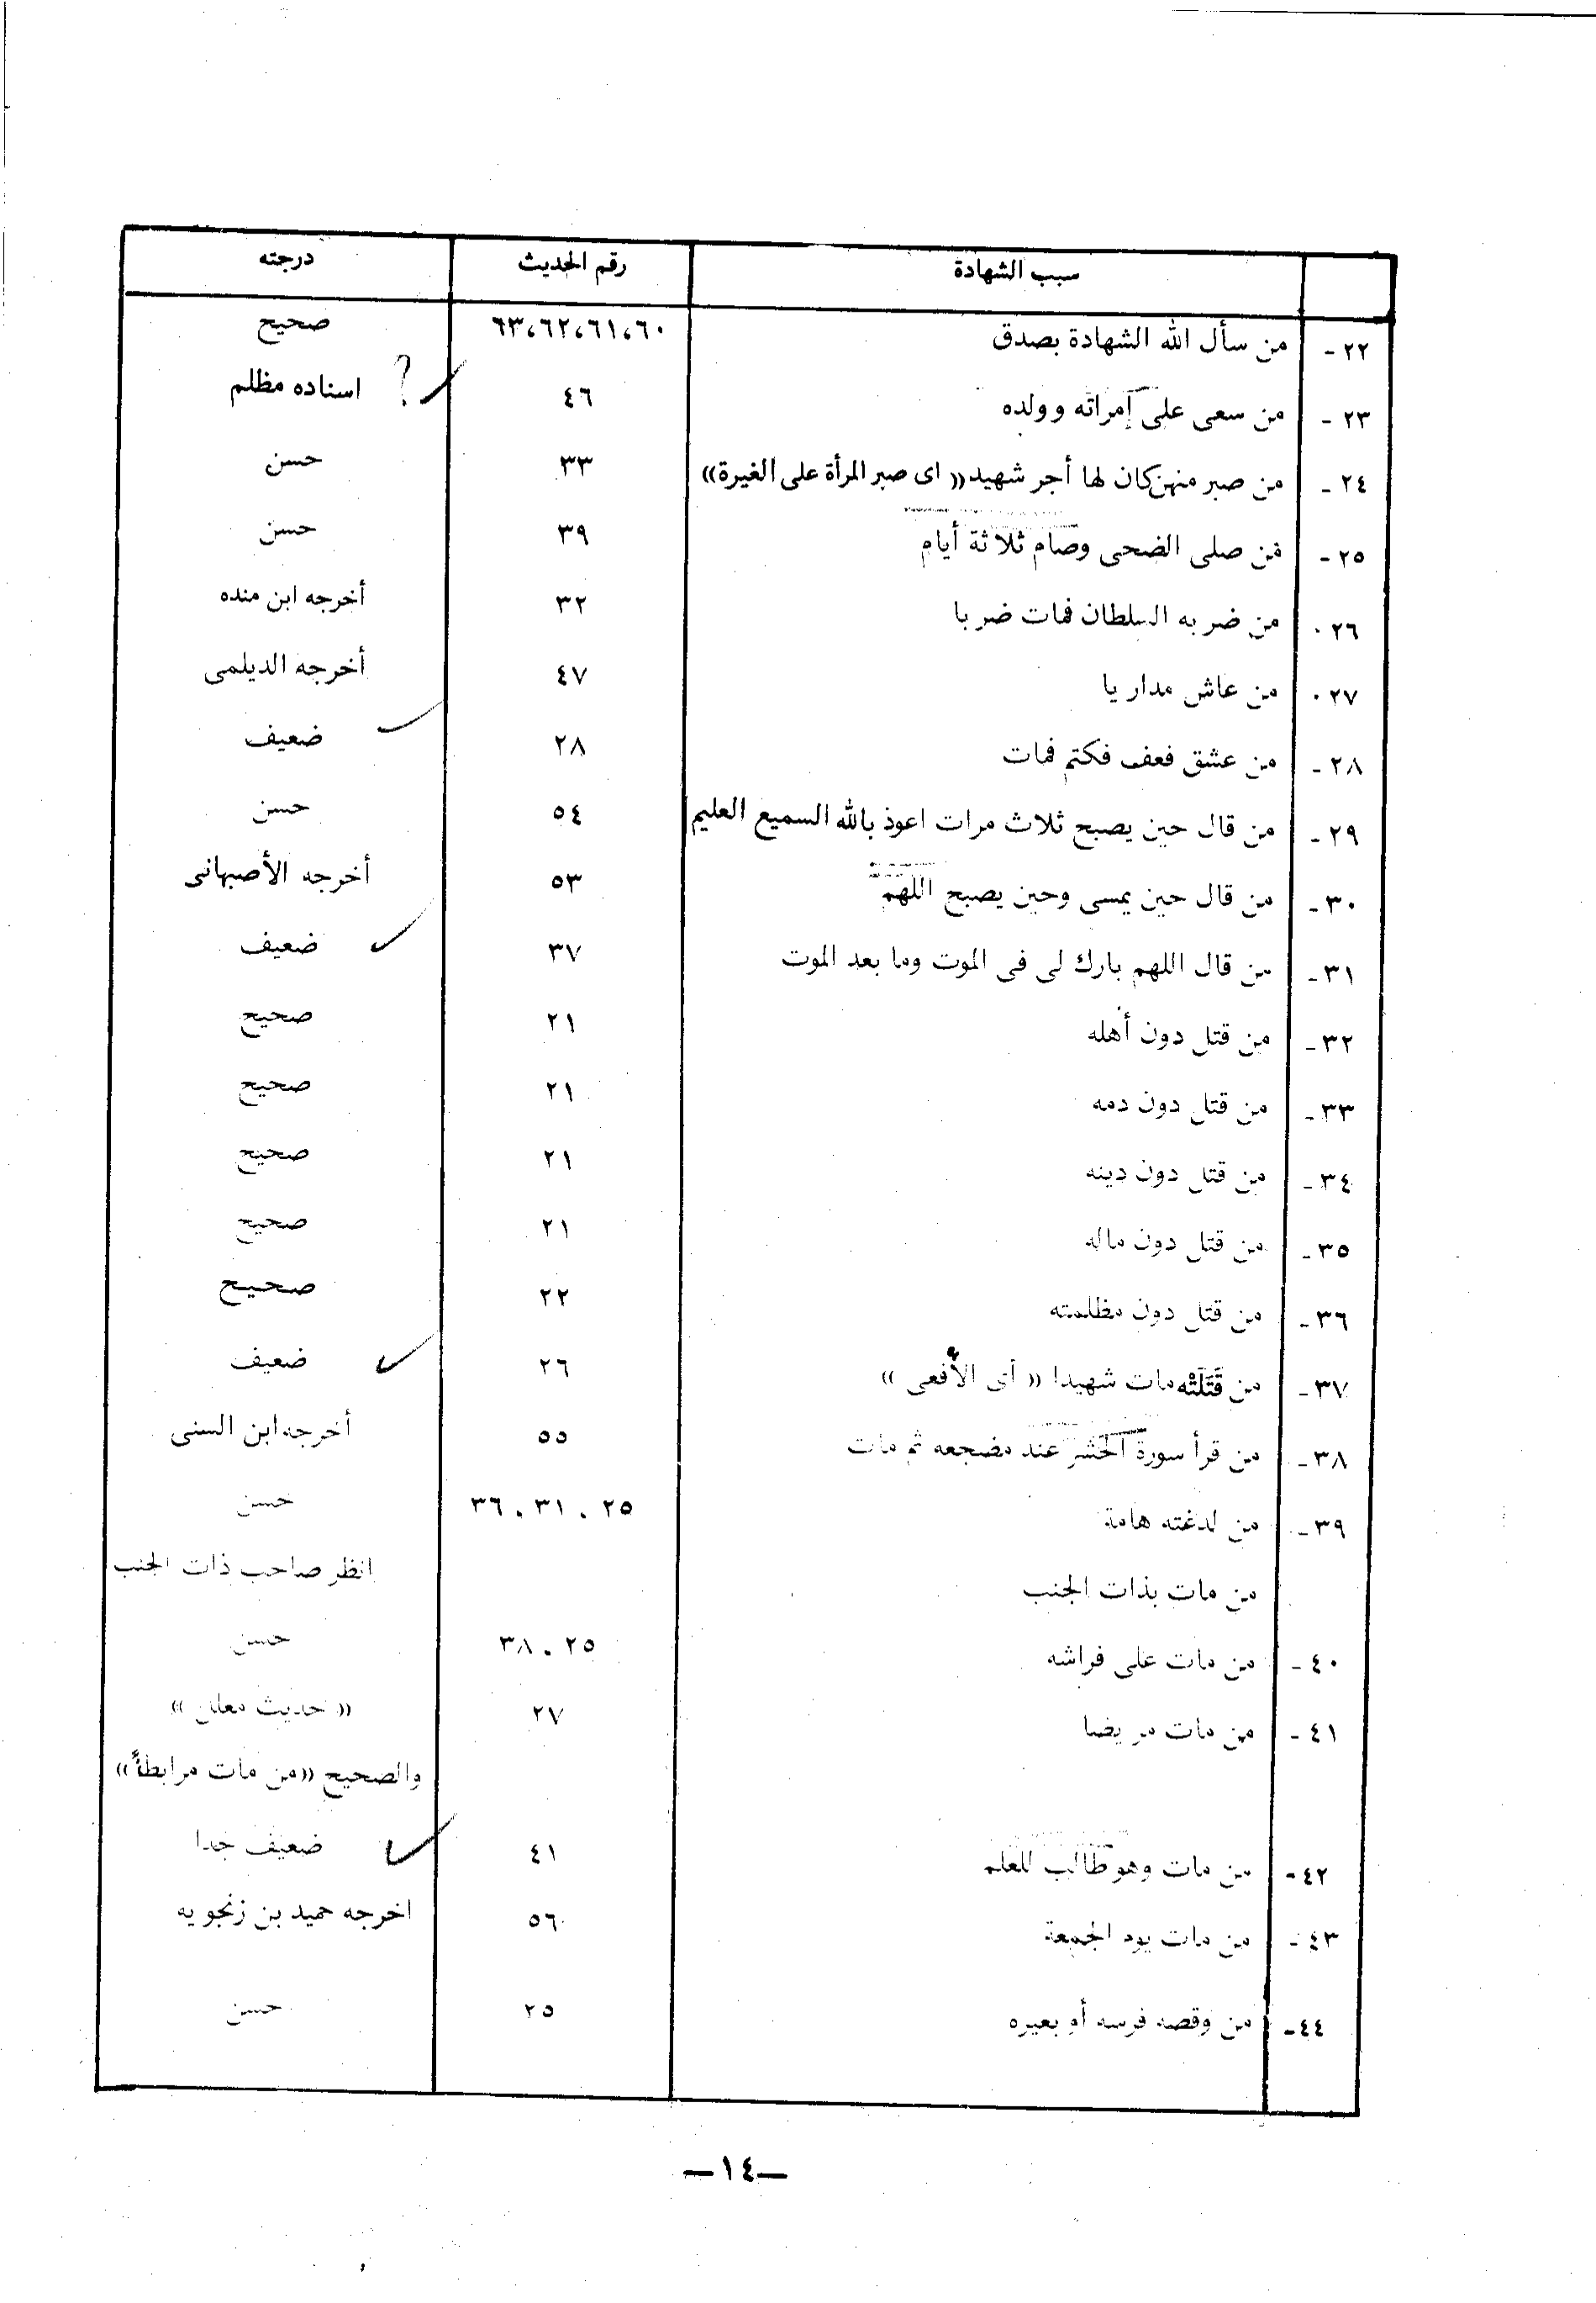 سبب الشهادة رقم الحديث درجته
٢٢- من سأل الله الشهادة بصدق ٦٠،٦١،٦٢،٦٣ صحيح
٢٣- من سعى على إمراته وولده ٤٦ ? اسناده مظلم
٢٤- من صبر منهن كان لها أجر شهيد «اى صبر المرأة على الغيرة» ٣٣ حسن
٢٥- من صلى الضحى وصام ثلاثة أيام ٣٩ حسن
٢٦٠ من ضربه السلطان فمات ضربا ٣٢ أخرجه ابن منده
٢٧٠ من عاش مداريا ٤٧ أخرجه الديلمى
٢٨- من عشق فعف فكتم فمات ٢٨ ضعيف
٢٩- من قال حين يصبح ثلاث مرات اعوذ بالله السميع العليم ٥٤ حسن
٣٠- من قال حين يمسى وحين يصبح اللهم ٥٣ أخرجه الأصبهانى
٣١- من قال اللهم بارك لى فى الموت وما بعد الموت ٣٧ ضعيف
٣٢- من قتل دون أهله ٢١ صحيح
٣٣- من قتل دون دمه ٢١ صحيح
٣٤- من قتل دون دينه ٢١ صحيح
٣٥- من قتل دون ماله ٢١ صحيح
٣٦- من قتل دون مظلمته ٢٢ صحيح
٣٧- من قَتَلَتْه مات شهيدا «أى الأفعى» ٢٦ ضعيف
٣٨- من قرأ سورة الحشر عند مضجعه ثم مات ٥٥ أخرجه ابن السنى
٣٩- من لدغته هامة ٢٥ ، ٣١ ، ٣٦ حسن
من مات بذات الجنب انظر صاحب ذات الجنب
٤٠- من مات على فراشه ٢٥ ، ٣٨ حسن
٤١- من مات مريضا ٢٧ «حديث معلل»
والصحيح «من مات مرابطاً»
٤٢- من مات وهو طالب للعلم ٤١ ضعيف جدا
٤٣- من مات يوم الجمعة ٥٦ اخرجه حميد بن زنجويه
٤٤- من وقصه فرسه أو بعيره ٢٥ حسن
—١٤—